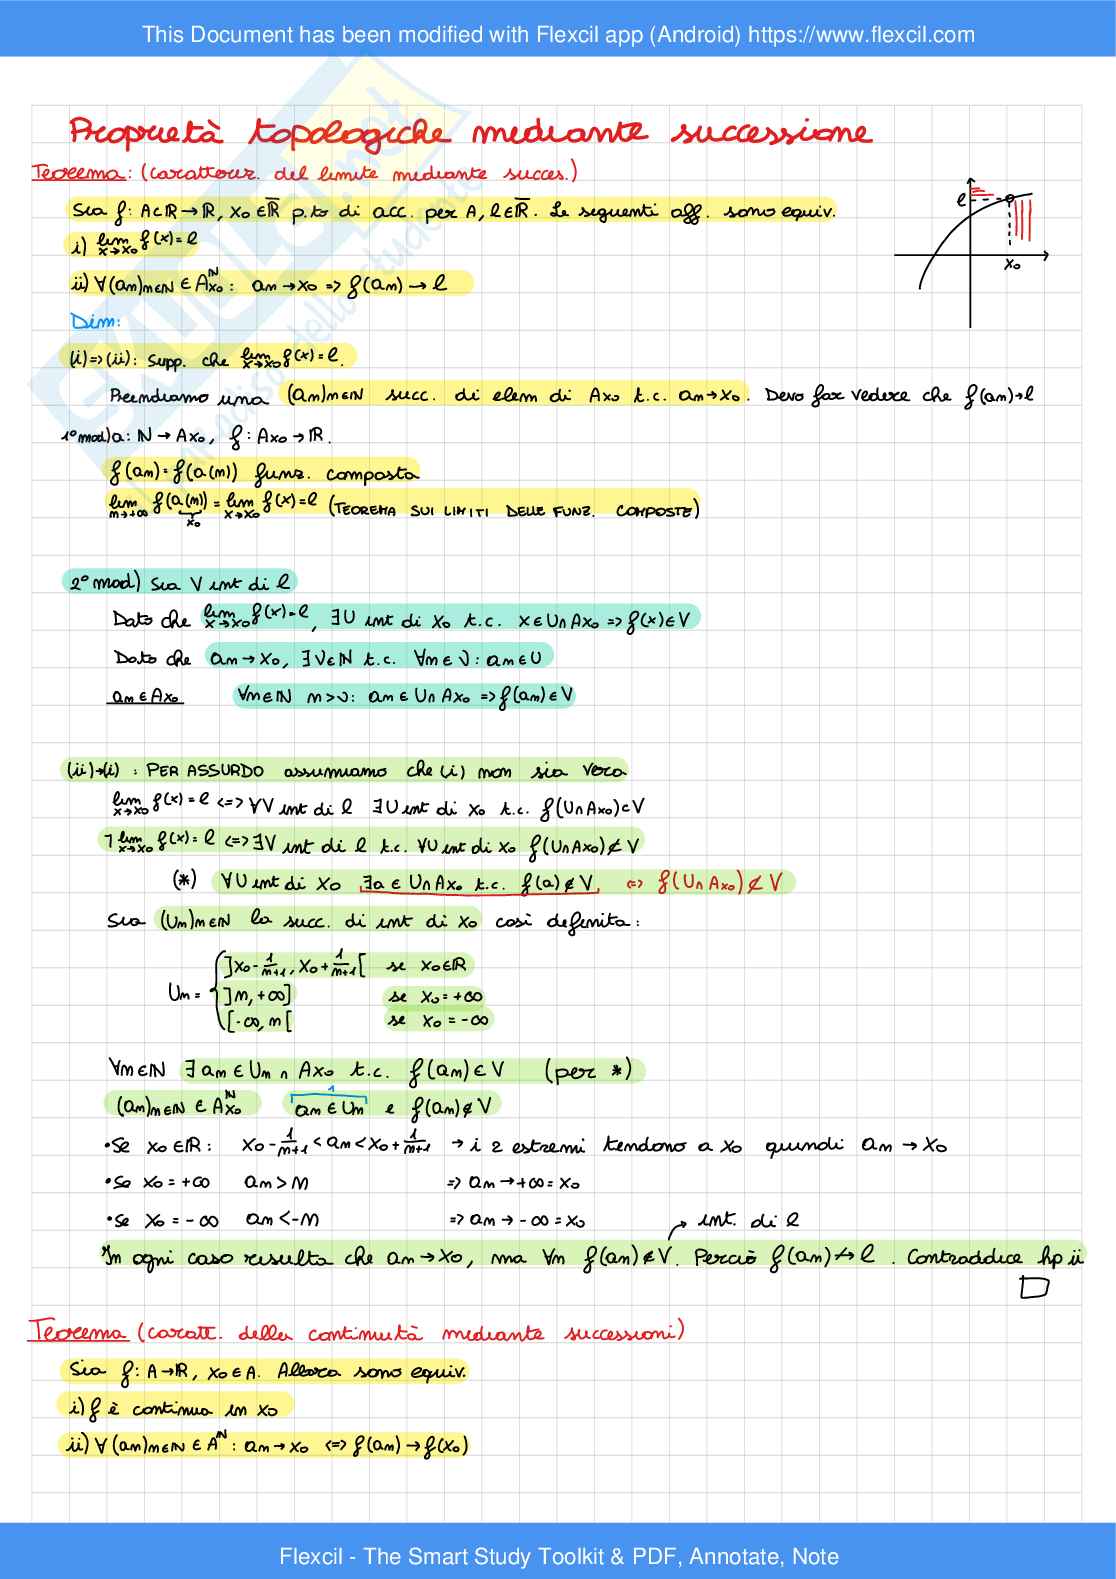 This Document has been modified with Flexcil app (Android) https://www.flexcil.com
Proprietà topologiche mediante successione
Teorema: (caratteriz. del limite mediante succes.)
Sia f: A⊂ℝ→ℝ, x₀∈ℝ̅ p.to di acc. per A, l∈ℝ̅. Le seguenti aff. sono equiv.
i) lim x→x₀ f(x)=l
ii) ∀(an)n∈ℕ ∈ Aₓ₀^ℕ: an→x₀ => f(an)→l
l
x₀
Dim:
(i)=>(ii): Supp. che lim x→x₀ f(x)=l.
Prendiamo una (an)n∈ℕ succ. di elem di Ax₀ t.c. an→x₀. Devo far vedere che f(an)→l
1° mod) a: ℕ→Ax₀, f: Ax₀→ℝ.
f(an)=f(a(n)) funz. composta
lim n→+∞ f(a(n)) = lim x→x₀ f(x)=l (TEOREMA SUI LIMITI DELLE FUNZ. COMPOSTE)
x₀
2° mod) Sia V int di l
Dato che lim x→x₀ f(x)=l, ∃U int di x₀ t.c. x∈U∩Ax₀ => f(x)∈V
Dato che an→x₀, ∃ν∈ℕ t.c. ∀n∈ν: an∈U
an∈Ax₀ ∀n∈ℕ n>ν: an∈U∩Ax₀ => f(an)∈V
(ii)→(i): PER ASSURDO assumiamo che (i) non sia vera
lim x→x₀ f(x)=l <=> ∀V int di l ∃U int di x₀ t.c. f(U∩Ax₀)⊂V
¬ lim x→x₀ f(x)=l <=> ∃V int di l t.c. ∀U int di x₀ f(U∩Ax₀)⊄V
(*) ∀U int di x₀ ∃a∈U∩Ax₀ t.c. f(a)∉V <=> f(U∩Ax₀)⊄V
Sia (Un)n∈ℕ la succ. di int di x₀ così definita:
Un = { ]x₀-1/(n+1), x₀+1/(n+1)[ se x₀∈ℝ
]n,+∞] se x₀=+∞
[-∞,n[ se x₀=-∞
∀n∈ℕ ∃an∈Un∩Ax₀ t.c. f(an)∈V (per *)
1
(an)n∈ℕ ∈ Aₓ₀^ℕ an∈Un e f(an)∉V
•Se x₀∈ℝ: x₀-1/(n+1)<an<x₀+1/(n+1) → i 2 estremi tendono a x₀ quindi an→x₀
•Se x₀=+∞ an>n => an→+∞=x₀
•Se x₀=-∞ an<-n => an→-∞=x₀
int. di l
In ogni caso risulta che an→x₀, ma ∀n f(an)∉V. Perciò f(an)↛l. Contraddice hp ii
□
Teorema (caratt. della continuità mediante successioni)
Sia f: A→ℝ, x₀∈A. Allora sono equiv.
i) f è continua in x₀
ii) ∀(an)n∈ℕ ∈ A^ℕ: an→x₀ <=> f(an)→f(x₀)
Flexcil - The Smart Study Toolkit & PDF, Annotate, Note